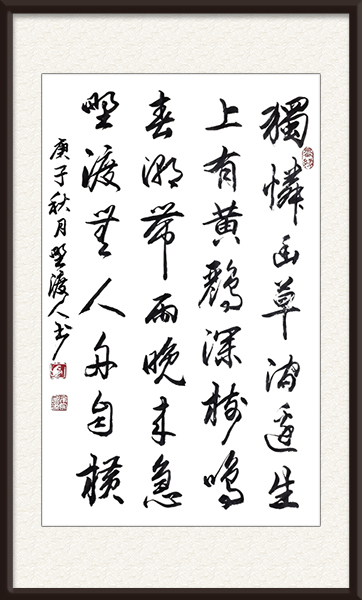 獨憐幽草澗邊生
上有黃鸝深樹鳴
春潮帶雨晚來急
野渡無人舟自橫
庚子秋月野渡人書